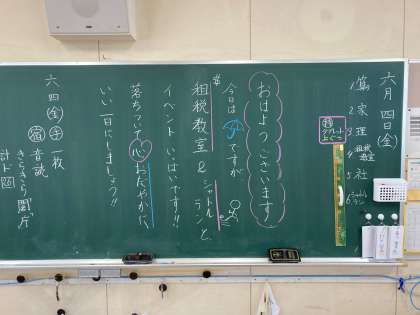 六月四日(金)
1 算
2 家
3 理
4 租税教室
5 社
6 シャトルラン
持 タブレット 上ぐつ
おはようございます
今日は ですが
租税教室&シャトルラン と、
イベントいっぱいです!!
落ちついて心おだやかに、
いい一日にしましょう!!
六/四(金) 手 一枚
宿 音読
きらきら 聞、庁
計ド